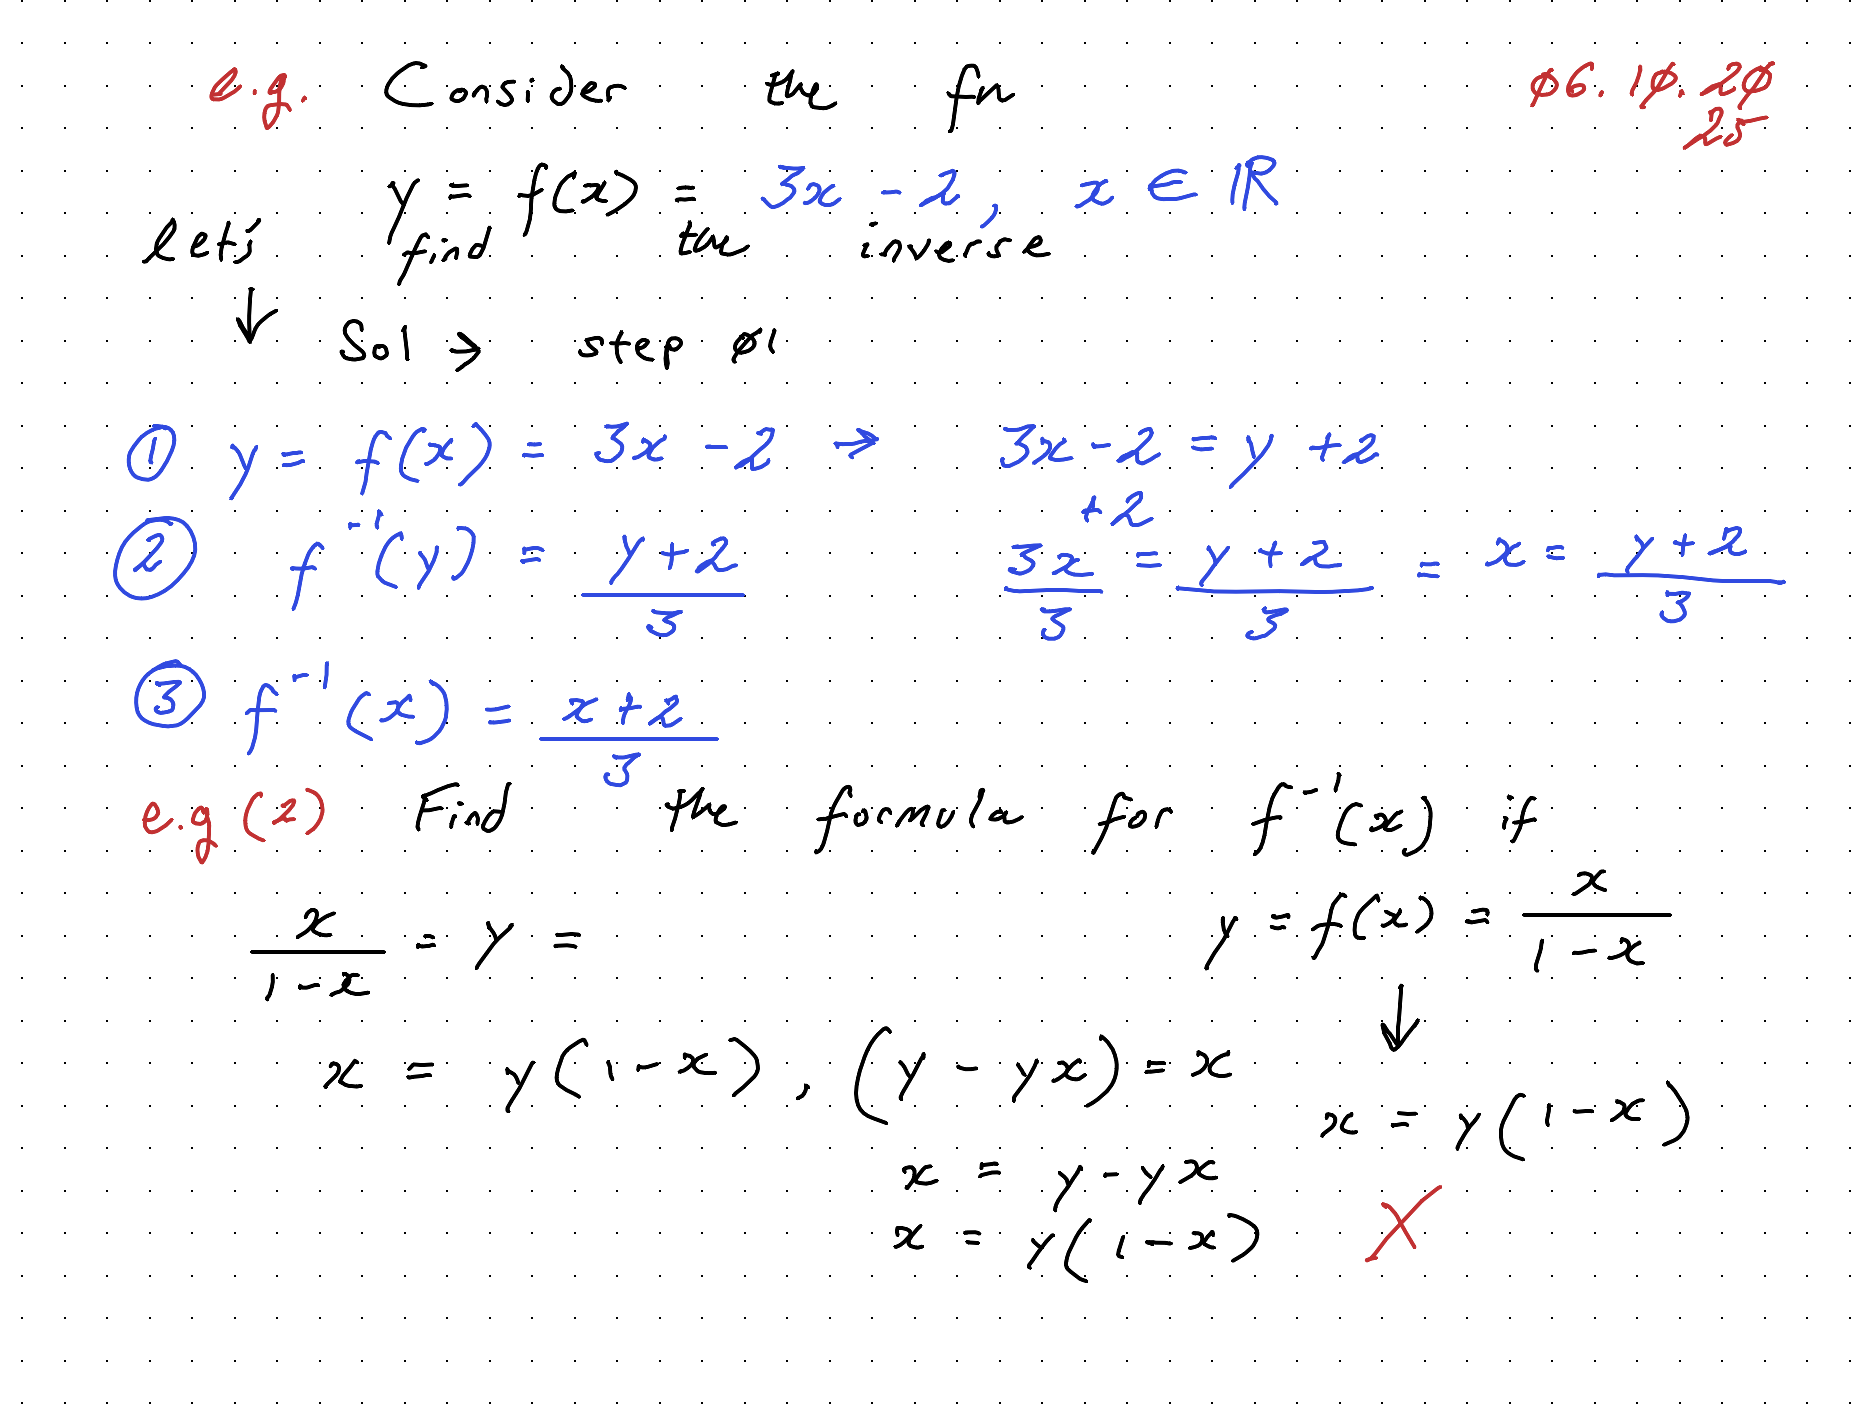 e.g. Consider the fn ø6. 1ø. 2ø
25
y = f(x) = 3x - 2, x ∈ ℝ
let's find the inverse
↓ Sol → step ø1
① y = f(x) = 3x - 2 → 3x - 2 = y + 2
+2
② f⁻¹(y) = (y + 2)/3 3x/3 = (y + 2)/3 = x = (y + 2)/3
③ f⁻¹(x) = (x + 2)/3
e.g (2) Find the formula for f⁻¹(x) if
x/(1 - x) = y = y = f(x) = x/(1 - x)
↓
x = y(1 - x), (y - yx) = x
x = y(1 - x)
x = y - yx
x = y(1 - x) X